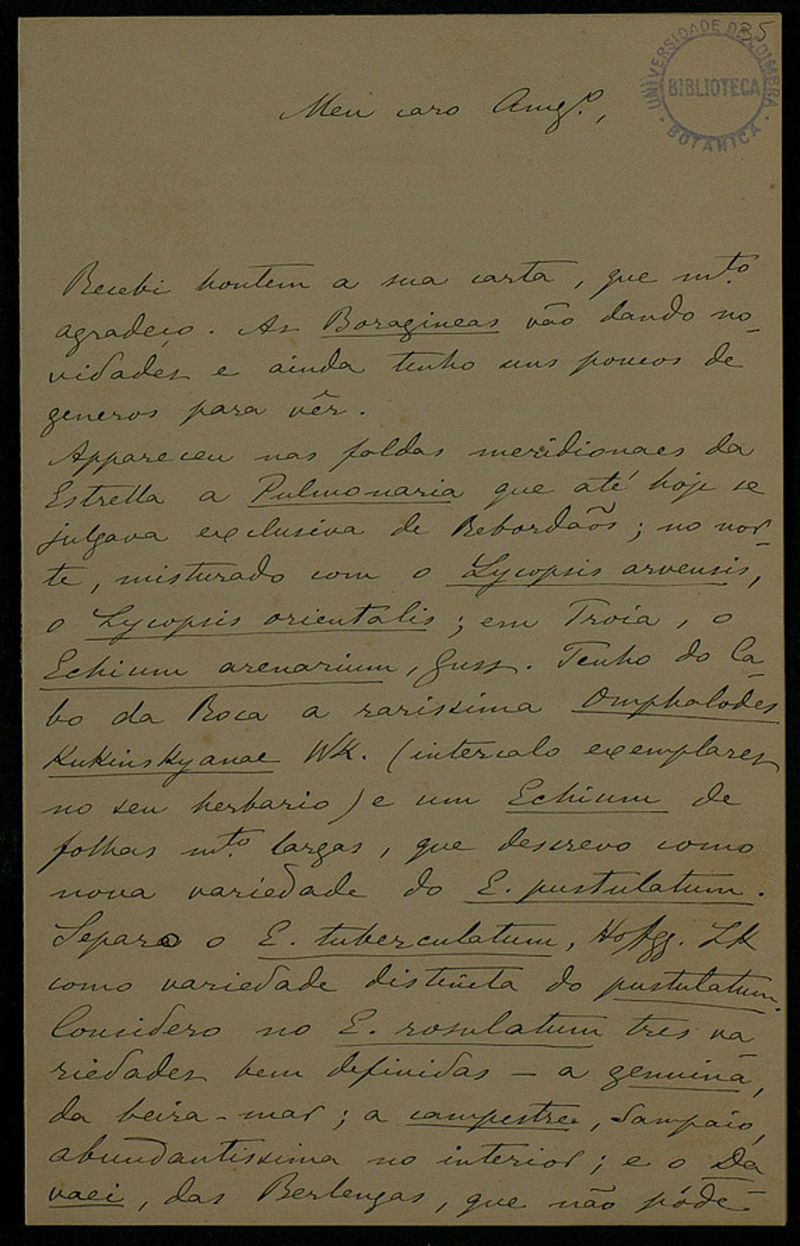 35
UNIVERSIDADE DE COIMBRA
BIBLIOTECA
BOTANICA
Meu caro Amgº.,
Recebi hontem a sua carta, que mtº
agradeço. As Boragineas vão dando no-
vidades e ainda tenho uns poucos de
generos para vêr.
Appareceu nas faldas meridionaes da
Estrella a Pulmonaria que até hoje se
julgava exclusiva de Rebordãos; no nor-
te, misturado com o Lycopsis arvensis,
o Lycopsis orientalis; em Troia, o
Echium arenarium, Guss. Tenho do Ca-
bo da Roca a rarissima Omphalodes
Kukinskyanae WK. (intercalo exemplares
no seu herbario) e um Echium de
folhas mtº largas, que descrevo como
nova variedade do E. pustulatum.
Separo o E. tuberculatum, Hoffgg. LK
como variedade distincta do pustulatum.
Considero no E. rosulatum tres va-
riedades bem definidas – a genuina,
da beira-mar; a campestre, Sampaio,
abundantissima no interior; e o Da-
vaei, das Berlengas, que não póde